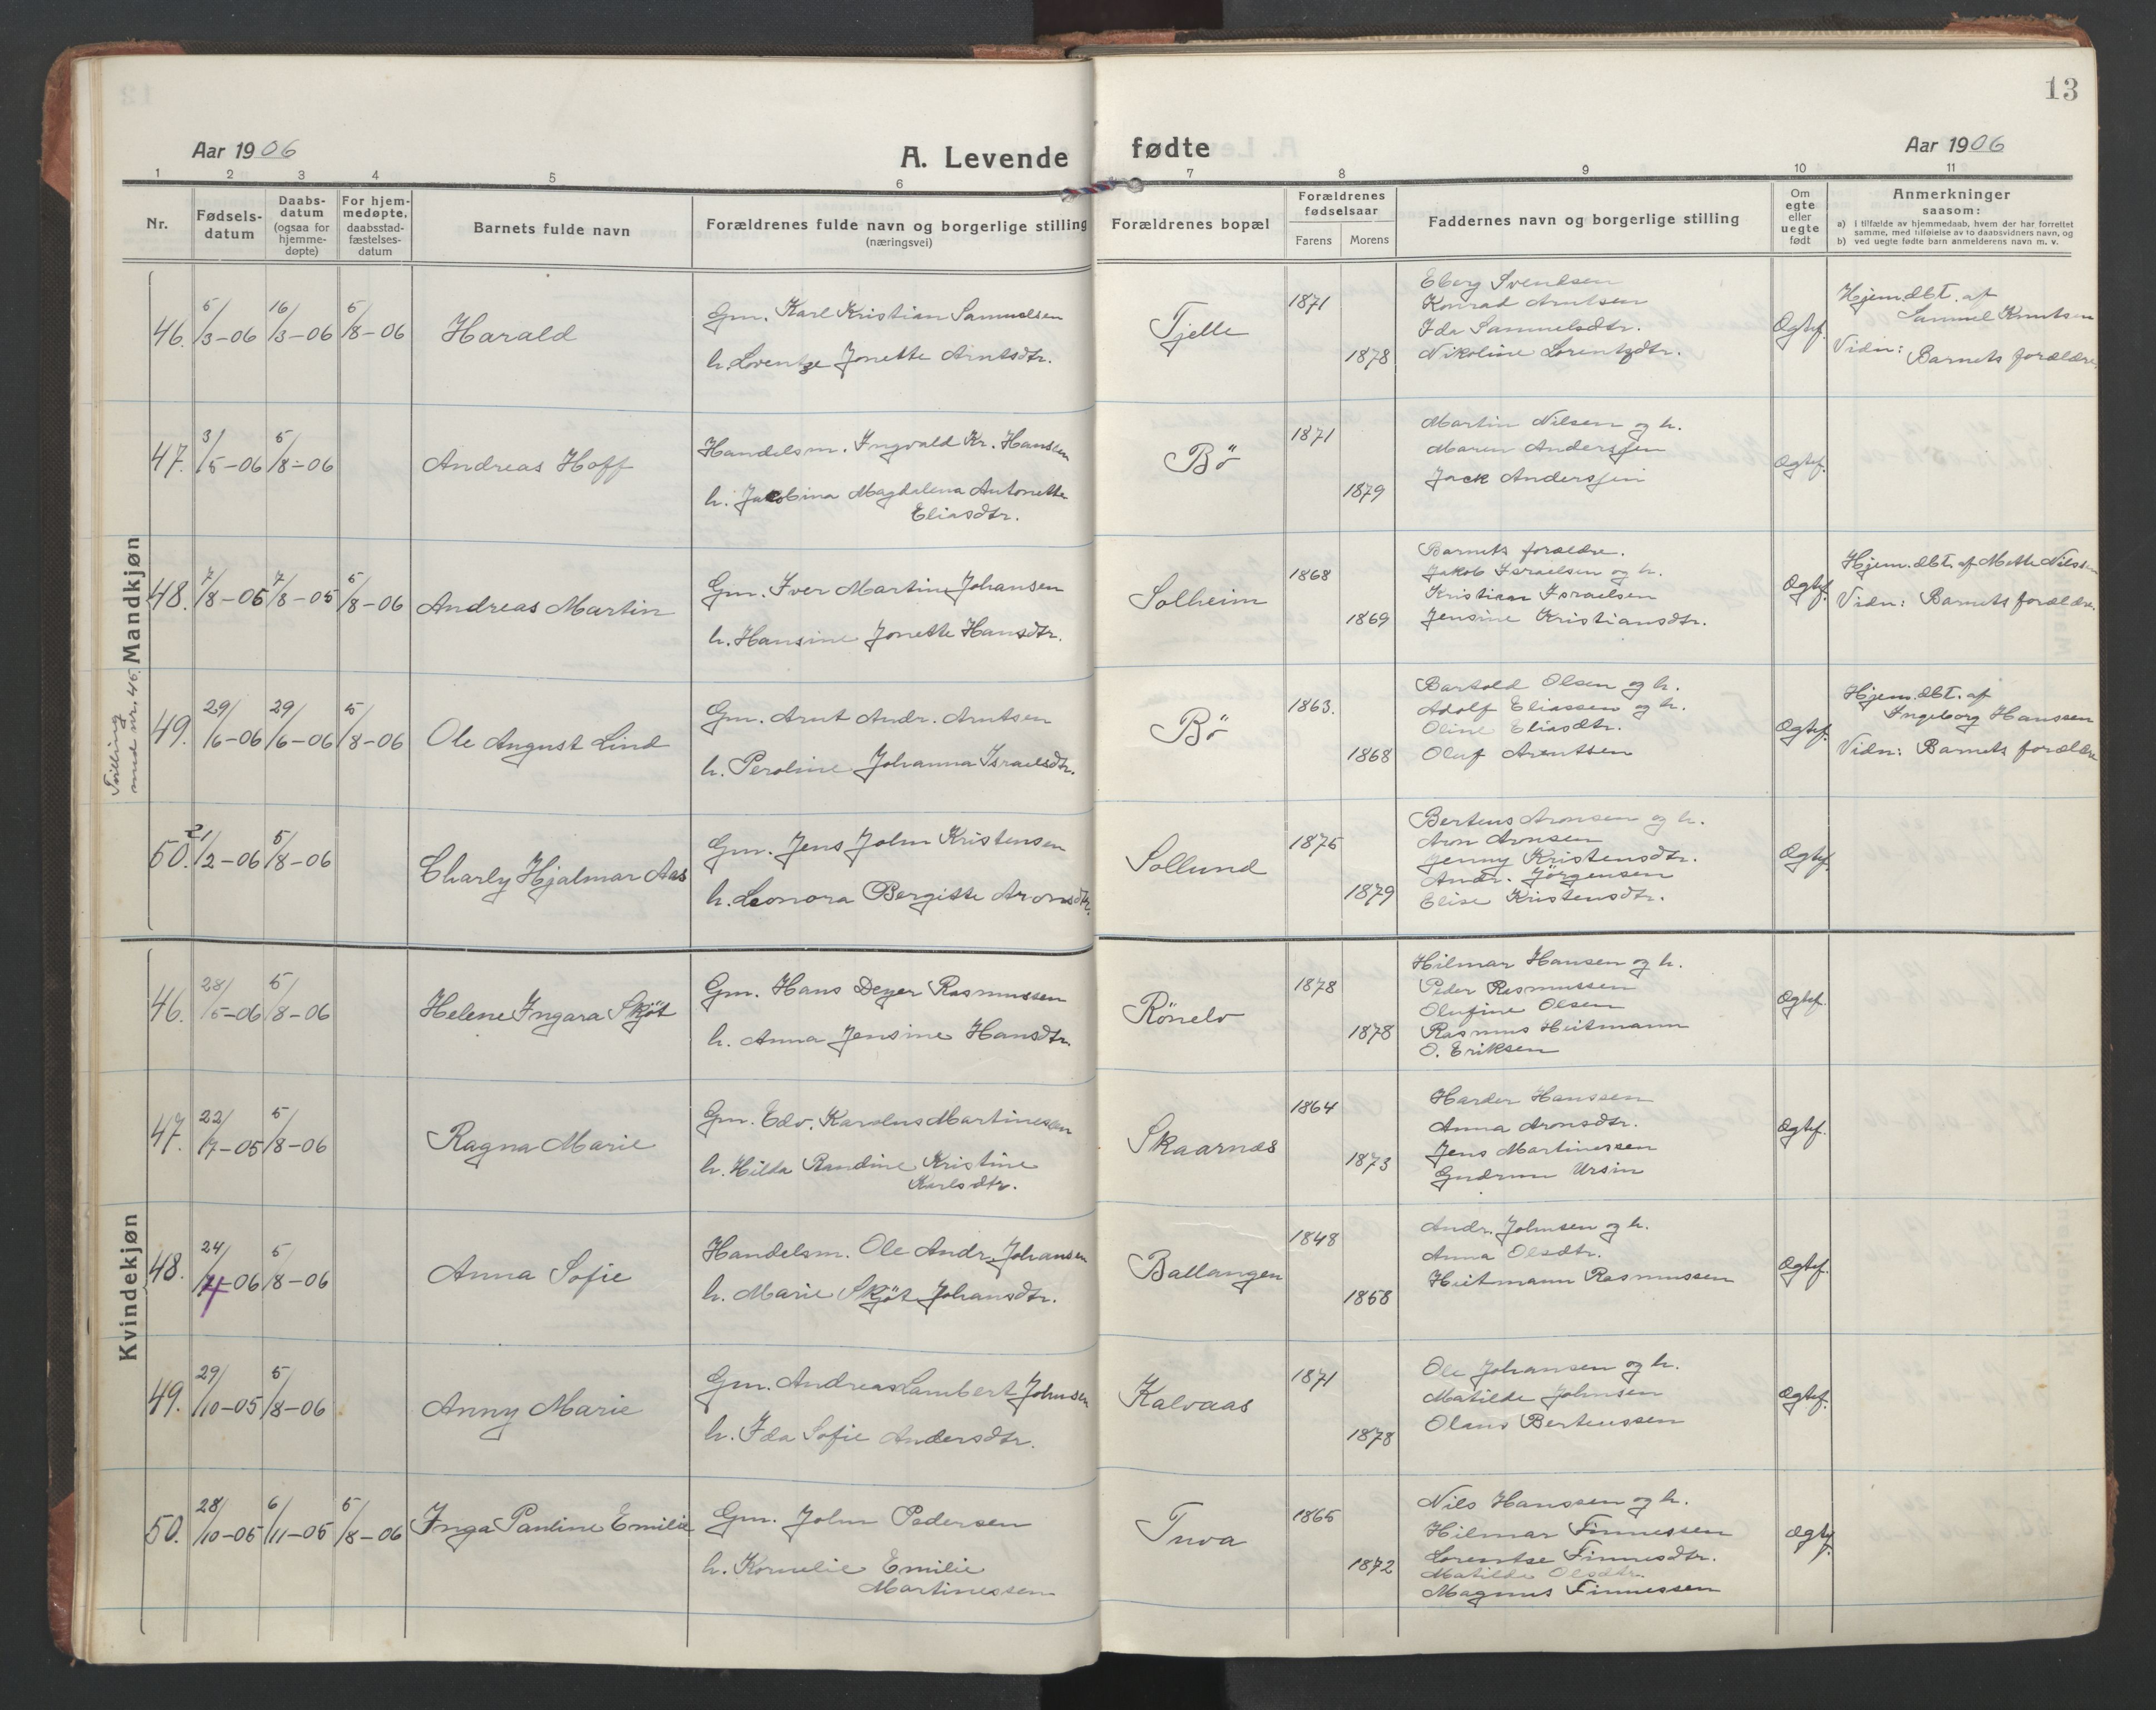 13
Aar 1906
A. Levende fødte
Aar 1906
1 2 3 4 5 6 7 8 9 10 11
Nr.
Fødsels-
datum
Daabs-
datum
(ogsaa for
hjemme-
døpte)
For hjem-
medøpte,
daabsstad-
fæstelses-
datum
Barnets fulde navn
Forældrenes fulde navn og borgerlige stilling
(næringsvei)
Forældrenes bopæl
Forældrenes
fødselsaar
Farens Morens
Faddernes navn og borgerlige stilling
Om
egte
eller
uegte
født
Anmerkninger
saasom:
a) i tilfælde av hjemmedaab, hvem der har forrettet
samme, med tilføielse av to daabsvidners navn, og
b) ved uegte fødte barn anmelderens navn m. v.
Mandkjøn
46. 5/3-06 16/3-06 5/8-06
Harald
Gm. Karl Kristian Samuelsen
h. Lorentze Jonette Arntsdtr.
Tjelle
1871
1878
Eberg Svendsen
Konrad Arntsen
Ida Samuelsdtr.
Nikoline Lorentzdtr.
Ægtef.
Hjem.dbt. af
Samuel Knutsen
Vidn: Barnets forældre
47. 3/5-06 5/8-06
Andreas Hoff
Handelsm. Ingvald Kr. Hansen
h. Jacobina Magdalena Antonette
Eliasdtr.
Bö
1871
1879
Martin Nilsen og h.
Maren Anderssen
Jack Anderssen
Ægtef.
48. 7/8-05 7/8-05 5/8-06
Andreas Martin
Gm. Iver Martin Johansen
h. Hansine Jonette Hansdtr.
Solheim
1868
1869
Barnets forældre.
Jakob Israelsen og h.
Kristian Israelsen
Jensine Kristiansdtr.
Ægtef.
Hjem.dbt. af Mette Nilssen
Vidn: Barnets forældre.
Tvilling
med nr. 45.
49. 29/6-06 29/6-06 5/8-06
Ole August Lind
Gm. Arnt Andr. Arntsen
h. Peroline Johanna Israelsdtr.
Bö
1863.
1868
Bartold Olsen og h.
Adolf Eliassen og h.
Oline Eliasdtr.
Oluf Arentsen
Ægtef.
Hjem.dbt. af
Ingeborg Hanssen
Vidn: Barnets forældre
50. 21/2-06 5/8-06
Charly Hjalmar Aas
Gm. Jens John Kristensen
h. Leonora Bergitte Aronsdtr.
Sollund
1875
1879
Bertens Aronsen og h.
Aron Aronsen
Jenny Kristensdtr.
Andr. Jörgensen
Elise Kristensdtr.
Ægtef.
Kvindekjøn
46. 28/5-06 5/8-06
Helene Ingara Skjöt
Gm. Hans Deyer Rasmussen
h. Anna Jensine Hansdtr.
Rönelv
1878
1878
Hilmar Hansen og h.
Peder Rasmussen
Olufine Olsen
Rasmus Heitmann
O. Eriksen
Ægtef.
47. 22/7-05 5/8-06
Ragna Marie
Gm. Edv. Karolus Martinessen
h. Hilda Randine Kristine
Karlsdtr.
Skaarnæs
1864
1873
Harder Hanssen
Anna Aronsdtr.
Jens Martinessen
Gudrun Ursin
Ægtef.
48. 24/4-06 5/8-06
Anna Sofie
Handelsm. Ole Andr. Johansen
h. Marie Skjöt Johansdtr.
Ballangen
1848
1868
Andr. Johnsen og h.
Anna Olsdtr.
Heitmann Rasmussen
Ægtef.
49. 29/10-05 5/8-06
Anny Marie
Gm. Andreas Lambert Johnsen
h. Ida Sofie Andersdtr.
Kalvaas
1871
1878
Ole Johansen og h.
Matilde Johnsen
Olaus Bertenssen
Ægtef.
50. 28/10-05 6/11-05 5/8-06
Inga Pauline Emilie
Gm. John Pedersen
h. Kornelie Emilie
Martinessen
Tuva
1865
1872
Nils Hanssen og h.
Hilmar Finnessen
Lorentse Finnesdtr.
Matilde Olsdtr.
Magnus Finnessen
Ægtef.